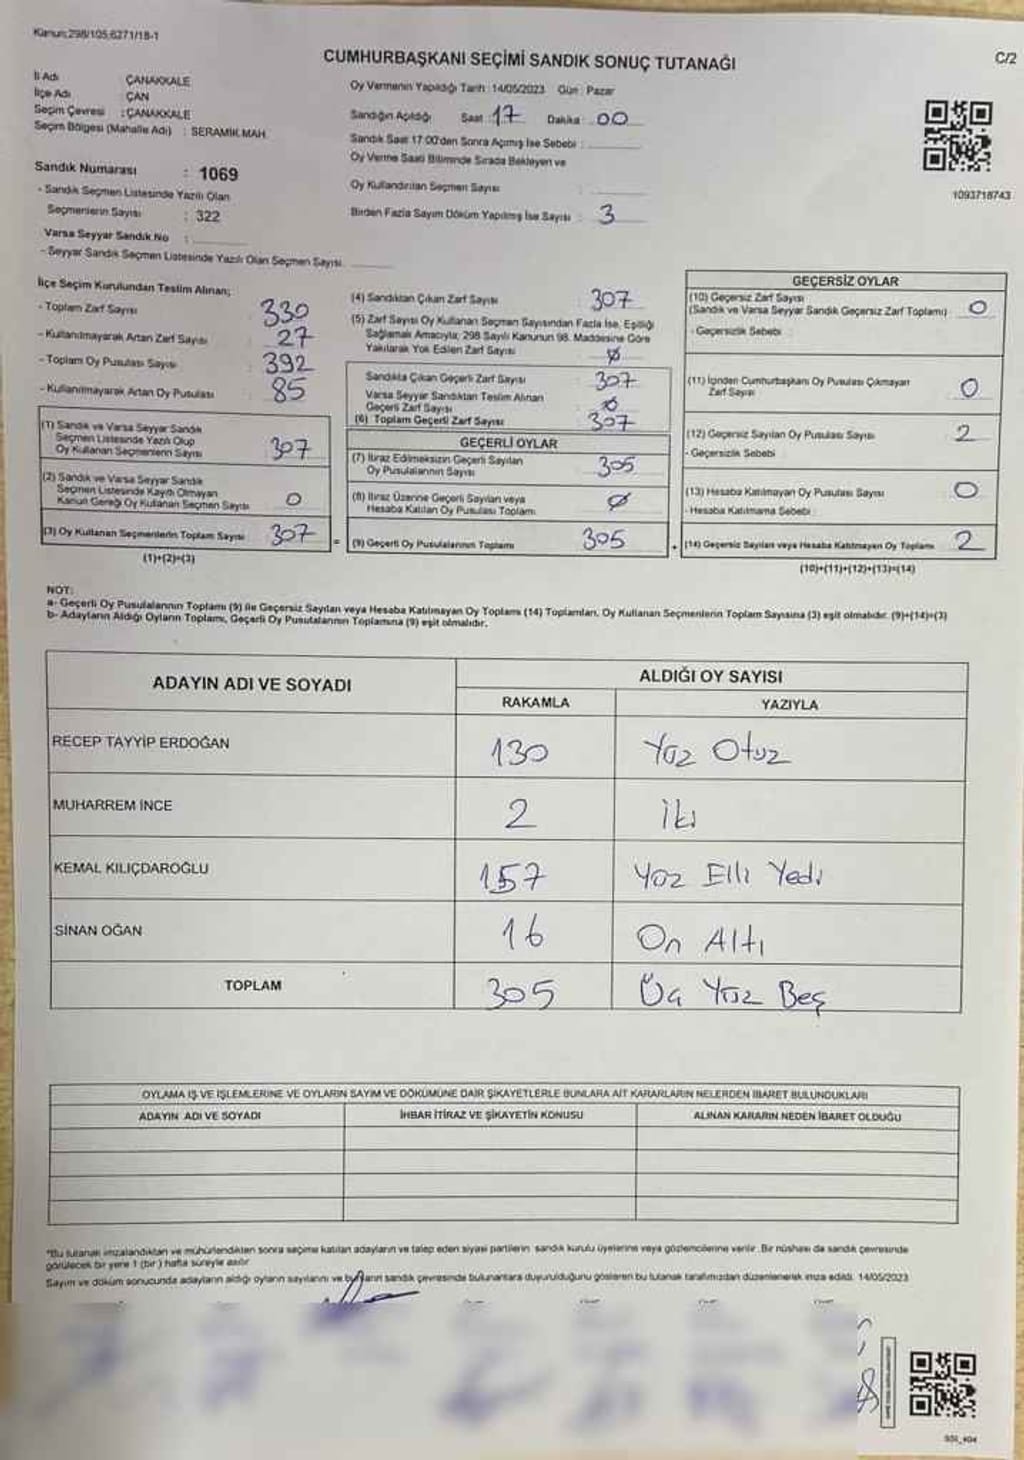 Kanun:298/105,6271/18-1
CUMHURBAŞKANI SEÇİMİ SANDIK SONUÇ TUTANAĞI
C/2
İl Adı ÇANAKKALE
İlçe Adı ÇAN
Seçim Çevresi : ÇANAKKALE
Seçim Bölgesi (Mahalle Adı) : SERAMİK MAH.
Oy Vermenin Yapıldığı Tarih : 14/05/2023 Gün : Pazar
Sandığın Açıldığı Saat : 17 Dakika : 00
Sandık Saat 17:00'den Sonra Açılmış İse Sebebi :
Oy Verme Saati Bitiminde Sırada Bekleyen ve
Oy Kullandırılan Seçmen Sayısı :
Birden Fazla Sayım Döküm Yapılmış İse Sayısı : 3
1093718743
Sandık Numarası : 1069
- Sandık Seçmen Listesinde Yazılı Olan
Seçmenlerin Sayısı : 322
Varsa Seyyar Sandık No :
- Seyyar Sandık Seçmen Listesinde Yazılı Olan Seçmen Sayısı
İlçe Seçim Kurulundan Teslim Alınan;
- Toplam Zarf Sayısı : 330
- Kullanılmayarak Artan Zarf Sayısı : 27
- Toplam Oy Pusulası Sayısı : 392
- Kullanılmayarak Artan Oy Pusulası : 85
(1) Sandık ve Varsa Seyyar Sandık
Seçmen Listesinde Yazılı Olup
Oy Kullanan Seçmenlerin Sayısı 307
(2) Sandık ve Varsa Seyyar Sandık
Seçmen Listesinde Kayıtlı Olmayan
Kanun Gereği Oy Kullanan Seçmen Sayısı 0
(3) Oy Kullanan Seçmenlerin Toplam Sayısı 307
(1)+(2)=(3)
(4) Sandıktan Çıkan Zarf Sayısı : 307
(5) Zarf Sayısı Oy Kullanan Seçmen Sayısından Fazla İse, Eşitliği
Sağlamak Amacıyla; 298 Sayılı Kanunun 98. Maddesine Göre
Yakılarak Yok Edilen Zarf Sayısı : Ø
Sandıkta Çıkan Geçerli Zarf Sayısı : 307
Varsa Seyyar Sandıktan Teslim Alınan
Geçerli Zarf Sayısı : Ø
(6) Toplam Geçerli Zarf Sayısı : 307
GEÇERLİ OYLAR
(7) İtiraz Edilmeksizin Geçerli Sayılan
Oy Pusulalarının Sayısı 305
(8) İtiraz Üzerine Geçerli Sayılan veya
Hesaba Katılan Oy Pusulası Toplamı Ø
= (9) Geçerli Oy Pusulalarının Toplamı 305
GEÇERSİZ OYLAR
(10) Geçersiz Zarf Sayısı
(Sandık ve Varsa Seyyar Sandık Geçersiz Zarf Toplamı) : 0
- Geçersizlik Sebebi :
(11) İçinden Cumhurbaşkanı Oy Pusulası Çıkmayan
Zarf Sayısı : 0
(12) Geçersiz Sayılan Oy Pusulası Sayısı : 2
- Geçersizlik Sebebi :
(13) Hesaba Katılmayan Oy Pusulası Sayısı : 0
- Hesaba Katılmama Sebebi :
+ (14) Geçersiz Sayılan veya Hesaba Katılmayan Oy Toplamı 2
(10)+(11)+(12)+(13)=(14)
NOT:
a- Geçerli Oy Pusulalarının Toplamı (9) ile Geçersiz Sayılan veya Hesaba Katılmayan Oy Toplamı (14) Toplamları, Oy Kullanan Seçmenlerin Toplam Sayısına (3) eşit olmalıdır. (9)+(14)=(3)
b- Adayların Aldığı Oyların Toplamı, Geçerli Oy Pusulalarının Toplamına (9) eşit olmalıdır.
ADAYIN ADI VE SOYADI ALDIĞI OY SAYISI
RAKAMLA YAZIYLA
RECEP TAYYİP ERDOĞAN 130 Yüz Otuz
MUHARREM İNCE 2 İki
KEMAL KILIÇDAROĞLU 157 Yüz Elli Yedi
SİNAN OĞAN 16 On Altı
TOPLAM 305 Üç Yüz Beş
OYLAMA İŞ VE İŞLEMLERİNE VE OYLARIN SAYIM VE DÖKÜMÜNE DAİR ŞİKAYETLERLE BUNLARA AİT KARARLARIN NELERDEN İBARET BULUNDUKLARI
ADAYIN ADI VE SOYADI İHBAR İTİRAZ VE ŞİKAYETİN KONUSU ALINAN KARARIN NEDEN İBARET OLDUĞU
"Bu tutanak imzalandıktan ve mühürlendikten sonra seçime katılan adayların ve talep eden siyasi partilerin sandık kurulu üyelerine veya gözlemcilerine verilir. Bir nüshası da sandık çevresinde
görülecek bir yere 1 (bir) hafta süreyle asılır
Sayım ve döküm sonucunda adayların aldığı oyların sayılarını ve bunların sandık çevresinde bulunanlara duyurulduğunu gösteren bu tutanak tarafımızdan düzenlenerek imza edildi. 14/05/2023